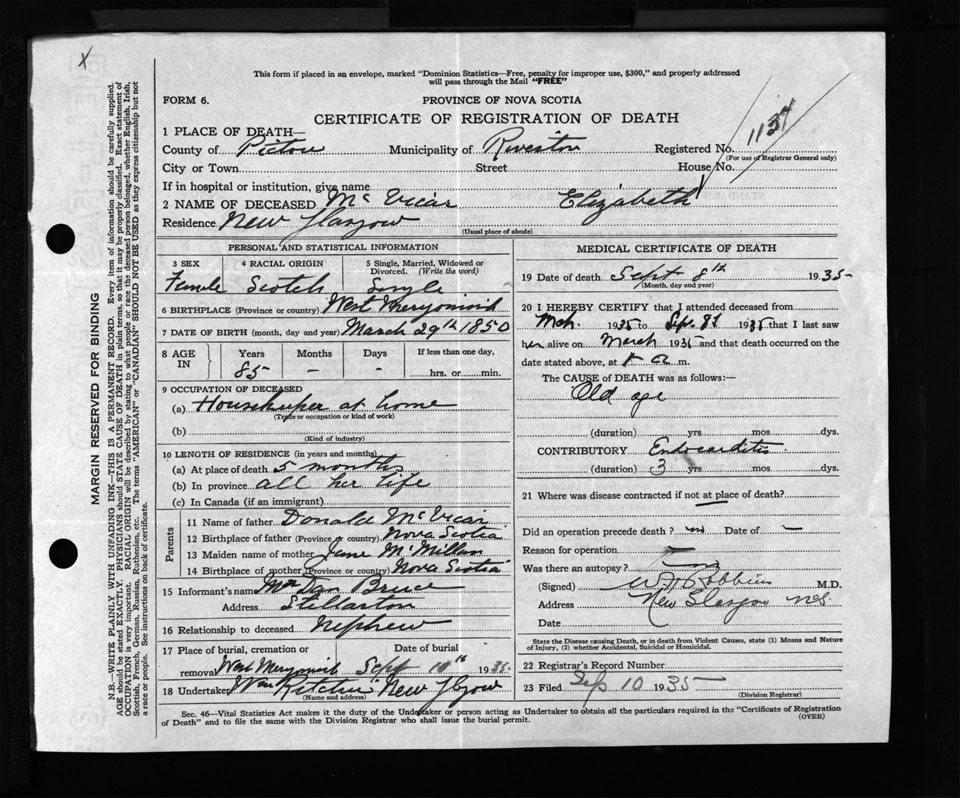 X
This form if placed in an envelope, marked "Dominion Statistics—Free, penalty for improper use, $300," and properly addressed
will pass through the Mail "FREE"
FORM 6.
PROVINCE OF NOVA SCOTIA
CERTIFICATE OF REGISTRATION OF DEATH
1137
1 PLACE OF DEATH—
County of Pictou Municipality of Registered No.
(For use of Registrar General only)
City or Town Street House No.
If in hospital or institution, give name
2 NAME OF DECEASED McVicar Elizabeth
Residence New Glasgow
(Usual place of abode)
PERSONAL AND STATISTICAL INFORMATION
3 SEX 4 RACIAL ORIGIN 5 Single, Married, Widowed or
Divorced. (Write the word)
Female Scotch Single
6 BIRTHPLACE (Province or country) West Merigomish
7 DATE OF BIRTH (month, day and year) March 29th 1850
8 AGE IN Years Months Days If less than one day,
85 — - hrs. or min.
9 OCCUPATION OF DECEASED
(a) Housekeeper at home
(Trade or occupation or kind of work)
(b)
(Kind of industry)
10 LENGTH OF RESIDENCE (in years and months)
(a) At place of death 5 months
(b) In province all her life
(c) In Canada (if an immigrant)
Parents
11 Name of father Donald McVicar
12 Birthplace of father (Province or country) Nova Scotia
13 Maiden name of mother Jane McMillan
14 Birthplace of mother (Province or country) Nova Scotia
15 Informant's name Dan Bruce
Address Stellarton
16 Relationship to deceased Nephew
17 Place of burial, cremation or Date of burial
removal West Merigomish Sept 10th 1935
18 Undertaker Wm Kitchin New Glasgow
(Name and address)
MEDICAL CERTIFICATE OF DEATH
19 Date of death Sept 8th 1935
(Month, day and year)
20 I HEREBY CERTIFY that I attended deceased from
Mch. 1935 to Sep. 8th 1935 that I last saw
her alive on March 1935 and that death occurred on the
date stated above, at a m.
The CAUSE of DEATH was as follows:—
Old age
(duration) yrs mos dys.
CONTRIBUTORY Endocarditis
(duration) 3 yrs mos dys.
21 Where was disease contracted if not at place of death?
Did an operation precede death? no Date of —
Reason for operation
Was there an autopsy? no
(Signed) M.D.
Address New Glasgow NS
Date
State the Disease causing Death, or in death from Violent Causes, state (1) Means and Nature
of Injury, (2) whether Accidental, Suicidal or Homicidal.
22 Registrar's Record Number
23 Filed Sep 10 1935
(Division Registrar)
Sec. 46—Vital Statistics Act makes it the duty of the Undertaker or person acting as Undertaker to obtain all the particulars required in the "Certificate of Registration
of Death" and to file the same with the Division Registrar who shall issue the burial permit. (OVER)
MARGIN RESERVED FOR BINDING
N.B.—WRITE PLAINLY WITH UNFADING INK—THIS IS A PERMANENT RECORD. Every item of information should be carefully supplied.
AGE should be stated EXACTLY. PHYSICIANS should STATE CAUSE OF DEATH in plain terms, so that it may be properly classified. Exact statement of
OCCUPATION is very important. RACIAL ORIGIN will be described by stating to what people or race the deceased person belonged, whether English, Irish,
Scottish, French, German, Russian, Ruthenian, etc. The terms "AMERICAN" or "CANADIAN" SHOULD NOT BE USED as they express citizenship but not
a race or people. See instructions on back of certificate.